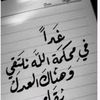 غداً
في محكمة الله نلتقي
وهناك العدل